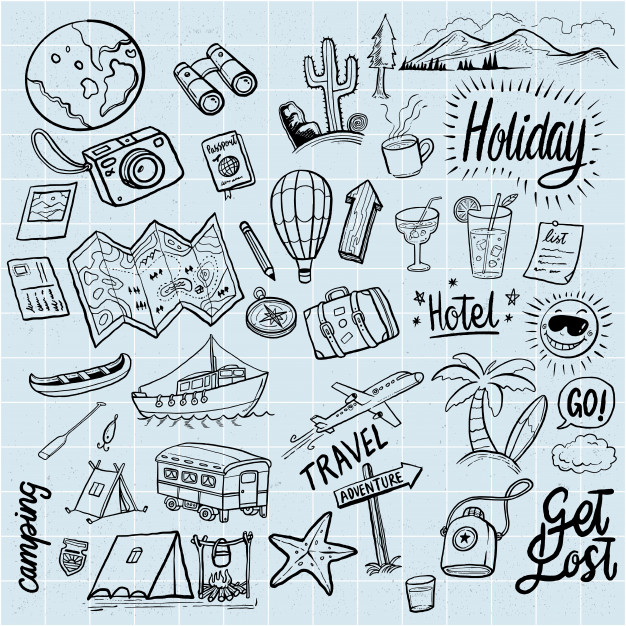 Holiday.
Passport
list
Hotel
GO!
TRAVEL
ADVENTURE
campeing
Get
Lost